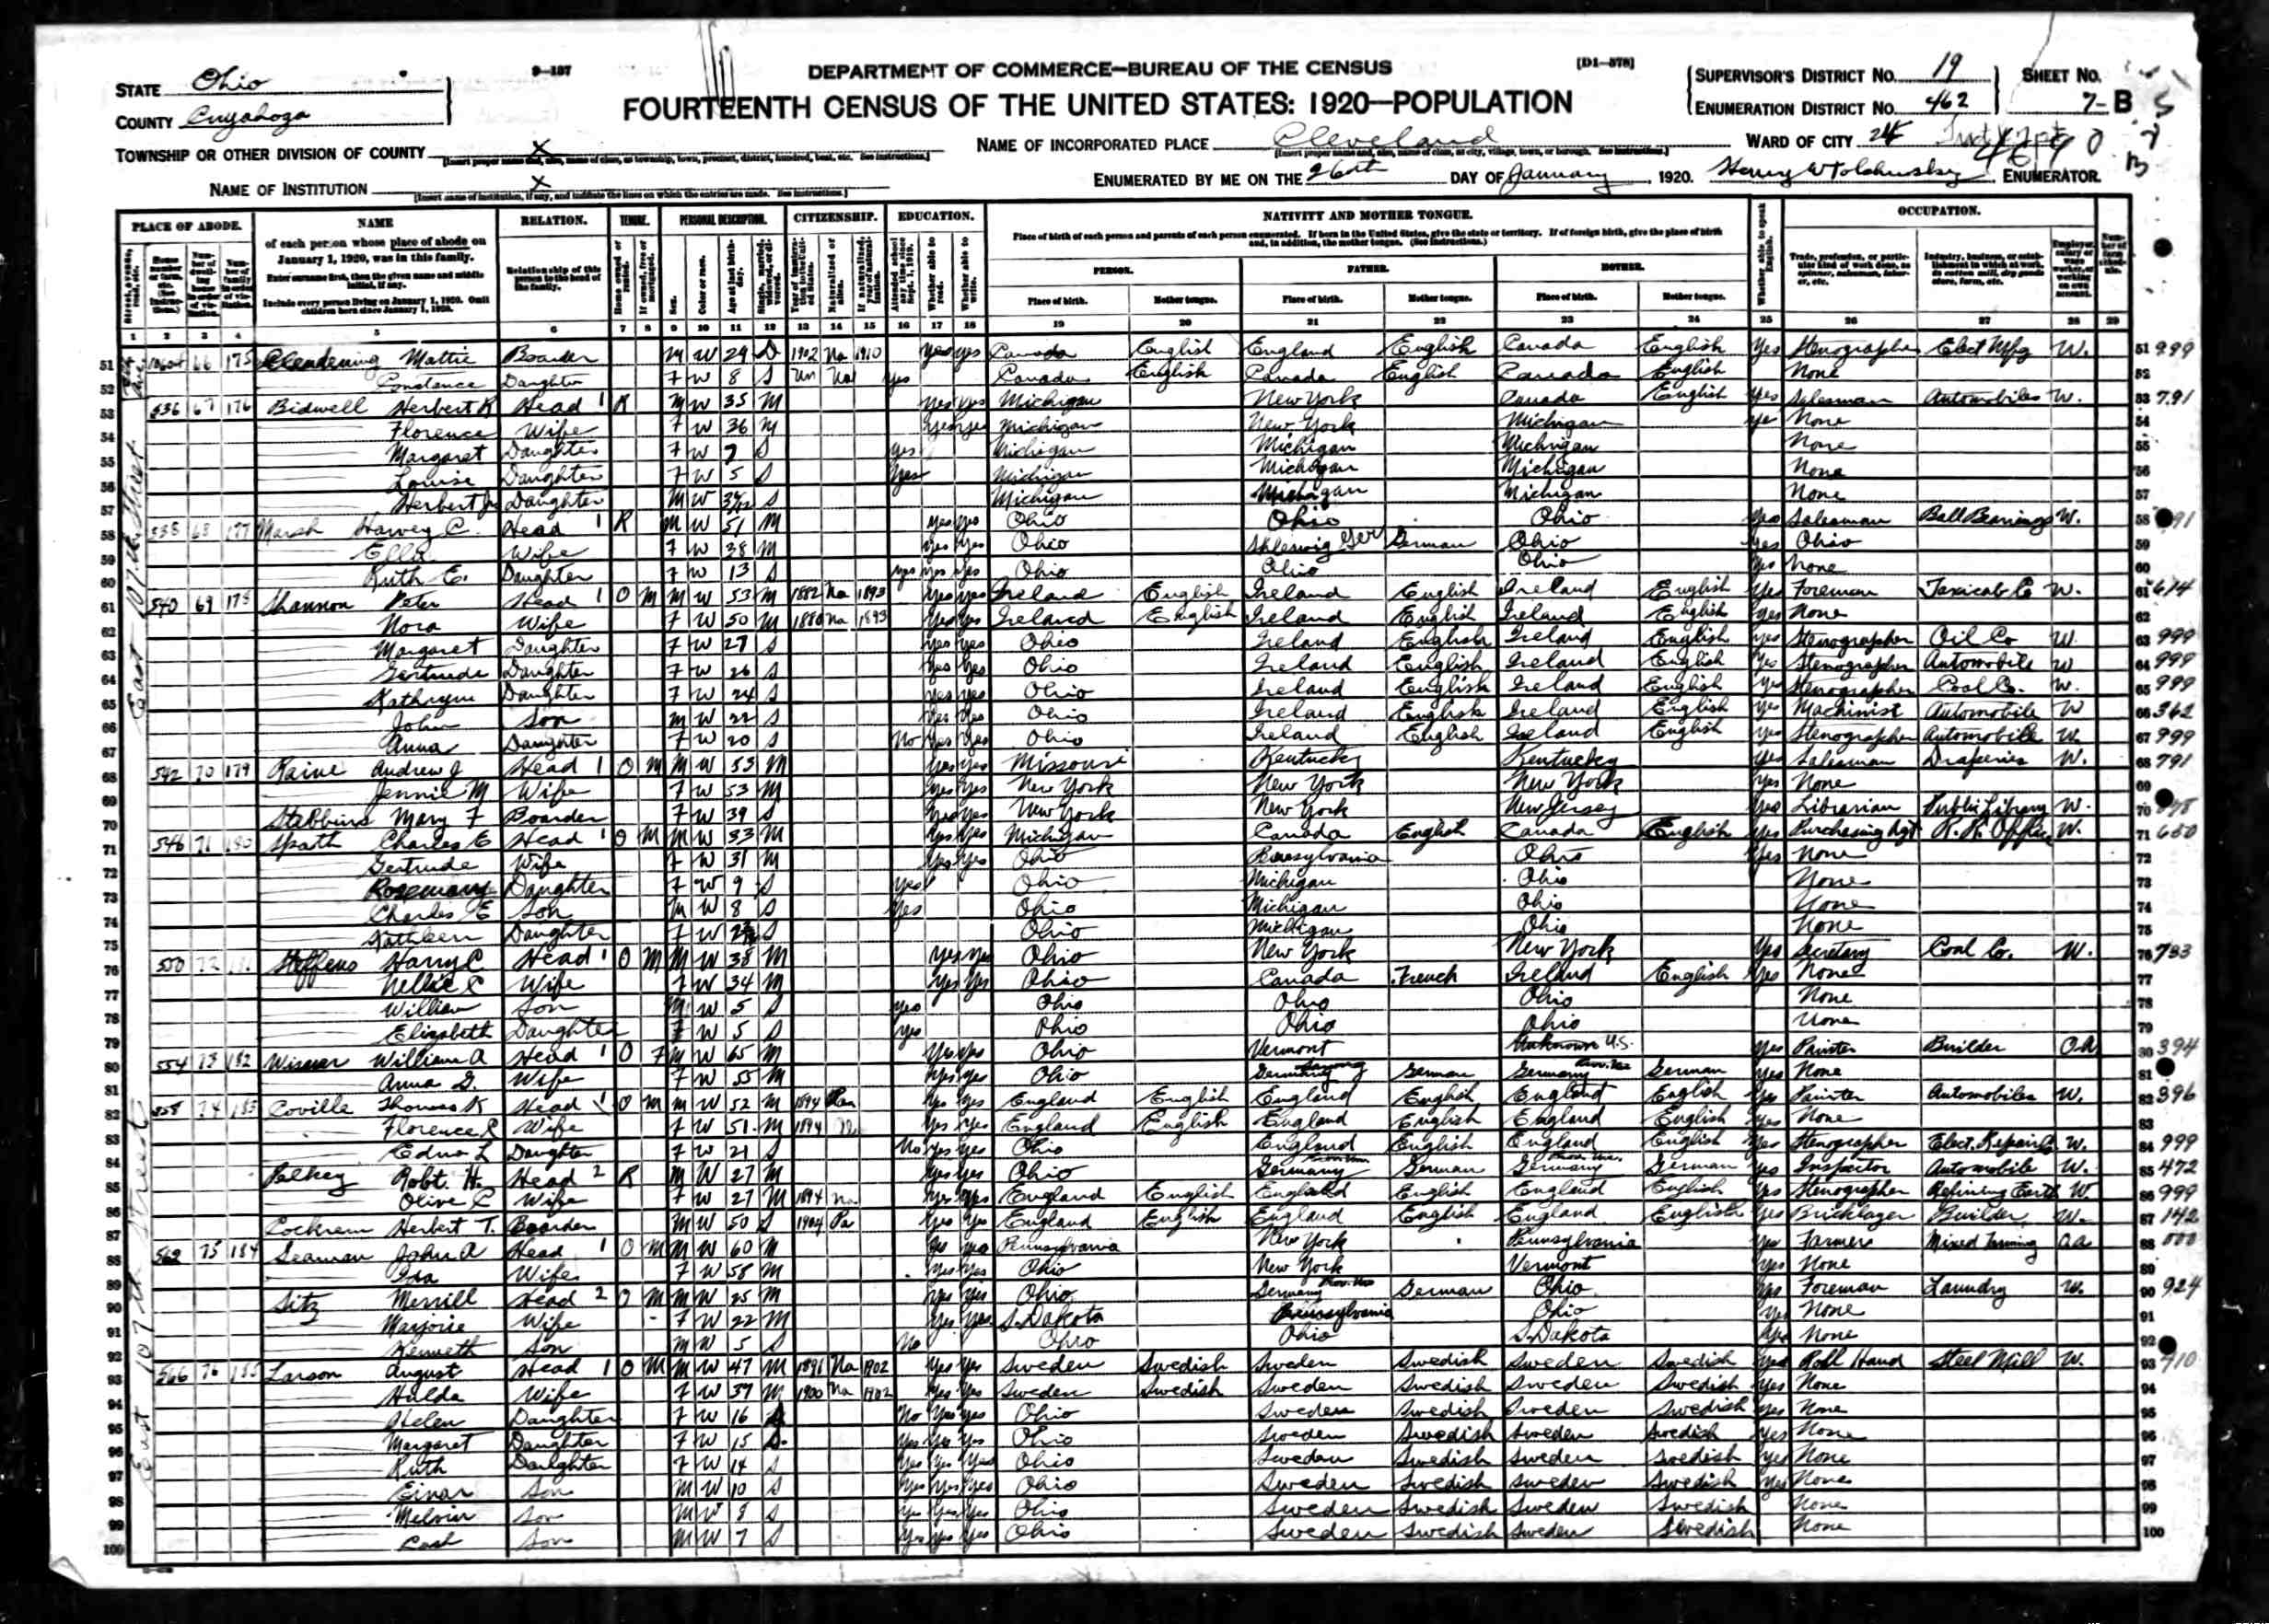 STATE Ohio
9-137
DEPARTMENT OF COMMERCE—BUREAU OF THE CENSUS
[D1-578]
SUPERVISOR'S DISTRICT NO. 19
SHEET NO.
COUNTY Cuyahoga
FOURTEENTH CENSUS OF THE UNITED STATES: 1920—POPULATION
ENUMERATION DISTRICT NO. 462
7- B
TOWNSHIP OR OTHER DIVISION OF COUNTY X
NAME OF INCORPORATED PLACE Cleveland
WARD OF CITY 24
NAME OF INSTITUTION X
ENUMERATED BY ME ON THE 26th DAY OF January, 1920. ENUMERATOR.
PLACE OF ABODE. NAME RELATION. TENURE. PERSONAL DESCRIPTION. CITIZENSHIP. EDUCATION. NATIVITY AND MOTHER TONGUE. OCCUPATION.
of each person whose place of abode on January 1, 1920, was in this family.
Enter surname first, then the given name and middle initial, if any.
Include every person living on January 1, 1920. Omit children born since January 1, 1920.
Relationship of this person to the head of the family.
Place of birth of each person and parents of each person enumerated. If born in the United States, give the state or territory. If of foreign birth, give the place of birth and, in addition, the mother tongue. (See Instructions.)
PERSON. FATHER. MOTHER.
Place of birth. Mother tongue. Place of birth. Mother tongue. Place of birth. Mother tongue.
1 2 3 4 5 6 7 8 9 10 11 12 13 14 15 16 17 18 19 20 21 22 23 24 25 26 27 28 29
51 66 175 Clendening Mattie Boarder M W 29 D 1902 Na 1910 Yes yes Canada English England English Canada English Yes Stenographer Elect Mfg W. 51 999
52 Constance Daughter F W 8 S Un Na Yes Canada English Canada English Canada English None 52
53 536 67 176 Bidwell Herbert R Head 1 R M W 35 M Yes Yes Michigan New York Canada English Yes Salesman Automobiles W. 53 791
54 Florence Wife F W 36 M Yes Yes Michigan New York Michigan Yes None 54
55 Margaret Daughter F W 7 S Yes Michigan Michigan Michigan None 55
56 Louise Daughter F W 5 S Yes Michigan Michigan Michigan None 56
57 Herbert Jr Daughter M W S Michigan Michigan Michigan None 57
58 538 68 177 Marsh Harvey C. Head 1 R M W 51 M Yes Yes Ohio Ohio Ohio Yes Salesman Ball Bearings W. 58 91
59 Ella Wife F W 38 M Yes Yes Ohio Shleswig Ger German Ohio Yes Ohio 59
60 Ruth E. Daughter F W 13 S yes yes yes Ohio Ohio Ohio Yes None 60
61 540 69 178 Shannon Peter Head 1 O M M W 53 M 1882 Na 1893 Yes yes Ireland English Ireland English Ireland English Yes Foreman Taxicab Co W. 61 614
62 Nora Wife F W 50 M 1880 Na 1893 Yes Yes Ireland English Ireland English Ireland English Yes None 62
63 Margaret Daughter F W 27 S Yes Yes Ohio Ireland English Ireland English Yes Stenographer Oil Co W 63 999
64 Gertrude Daughter F W 26 S Yes Yes Ohio Ireland English Ireland English Yes Stenographer Automobile W 64 999
65 Kathryn Daughter F W 24 S Yes yes Ohio Ireland English Ireland English Yes Stenographer Coal Co. W. 65 999
66 John Son M W 22 S Yes Yes Ohio Ireland English Ireland English Yes Machinist Automobile W 66 362
67 Anna Daughter F W 20 S No Yes Yes Ohio Ireland English Ireland English Yes Stenographer Automobile W. 67 999
68 542 70 179 Raine Andrew J Head 1 O M M W 53 M Yes Yes Missouri Kentucky Kentucky Yes Salesman Draperies W. 68 791
69 Jennie M Wife F W 53 M Yes Yes New York New York New York Yes None 69
70 Stebbins Mary F Boarder F W 39 S Yes Yes New York New York New Jersey Yes Librarian Public Library W. 70
71 546 71 180 Spath Charles E Head 1 O M M W 33 M Yes Yes Michigan Canada English Canada English Yes Purchasing Agt R.R. Office W. 71 650
72 Gertrude Wife F W 31 M Yes Yes Ohio Pennsylvania Ohio Yes None 72
73 Rosemary Daughter F W 9 S Yes Ohio Michigan Ohio None 73
74 Charles E Son M W 8 S Yes Ohio Michigan Ohio None 74
75 Kathleen Daughter F W S Ohio Michigan Ohio None 75
76 550 72 181 Steffens Harry C Head 1 O M M W 38 M Yes Yes Ohio New York New York Yes Secretary Coal Co. W. 76 733
77 Nellie C Wife F W 34 M Yes Yes Ohio Canada French Ireland English Yes None 77
78 William Son M W 5 S Yes Ohio Ohio Ohio None 78
79 Elizabeth Daughter F W 5 S Yes Ohio Ohio Ohio None 79
80 554 73 182 Wismar William A Head 1 O F M W 65 M Yes Yes Ohio Vermont Unknown U.S. Yes Painter Builder O.A 80 394
81 Anna G. Wife F W 55 M Yes Yes Ohio Germany German Germany German Yes None 81
82 558 74 183 Coville Thomas K Head 1 O M M W 52 M 1894 Yes Yes England English England English England English Yes Painter Automobiles W. 82 396
83 Florence C Wife F W 51 M 1894 Yes Yes England English England English England English Yes None 83
84 Edna L Daughter F W 21 S No Yes Yes Ohio England English England English Yes Stenographer Elect. Repairs W. 84 999
85 Pelkey Robt. H. Head 2 R M W 27 M Yes Yes Ohio Germany German Germany German Yes Inspector Automobile W. 85 472
86 Olive C Wife F W 27 M 1894 Na Yes Yes England English England English England English Yes Stenographer Refining Earth W. 86 999
87 Cockrem Herbert T. Boarder M W 50 S 1904 Pa Yes Yes England English England English England English Yes Bricklayer Builder W. 87 142
88 562 75 184 Seaman John A Head 1 O M M W 60 M Yes Yes Pennsylvania New York Pennsylvania Yes Farmer Mixed Farming O.A. 88 000
89 Ida Wife F W 58 M Yes Yes Ohio New York Vermont Yes None 89
90 Sitz Merrill Head 2 O M M W 25 M Yes Yes Ohio Germany German Ohio Yes Foreman Laundry W. 90 924
91 Marjorie Wife F W 22 M Yes Yes S. Dakota Pennsylvania Ohio Yes None 91
92 Kenneth Son M W 5 S No Ohio Ohio S. Dakota Yes None 92
93 566 76 185 Larson August Head 1 O M M W 47 M 1891 Na 1902 Yes Yes Sweden Swedish Sweden Swedish Sweden Swedish Yes Roll Hand Steel Mill W. 93 710
94 Hulda Wife F W 37 M 1900 Na 1902 Yes Yes Sweden Swedish Sweden Swedish Sweden Swedish Yes None 94
95 Helen Daughter F W 16 S No Yes Yes Ohio Sweden Swedish Sweden Swedish Yes None 95
96 Margaret Daughter F W 15 S Yes Yes Yes Ohio Sweden Swedish Sweden Swedish Yes None 96
97 Ruth Daughter F W 14 S Yes Yes Yes Ohio Sweden Swedish Sweden Swedish Yes None 97
98 Einar Son M W 10 S Yes Yes Yes Ohio Sweden Swedish Sweden Swedish Yes None 98
99 Melvin Son M W 8 S Yes Yes Yes Ohio Sweden Swedish Sweden Swedish None 99
100 Carl Son M W 7 S Yes Yes Yes Ohio Sweden Swedish Sweden Swedish None 100
East 107th Street
East 107th Street